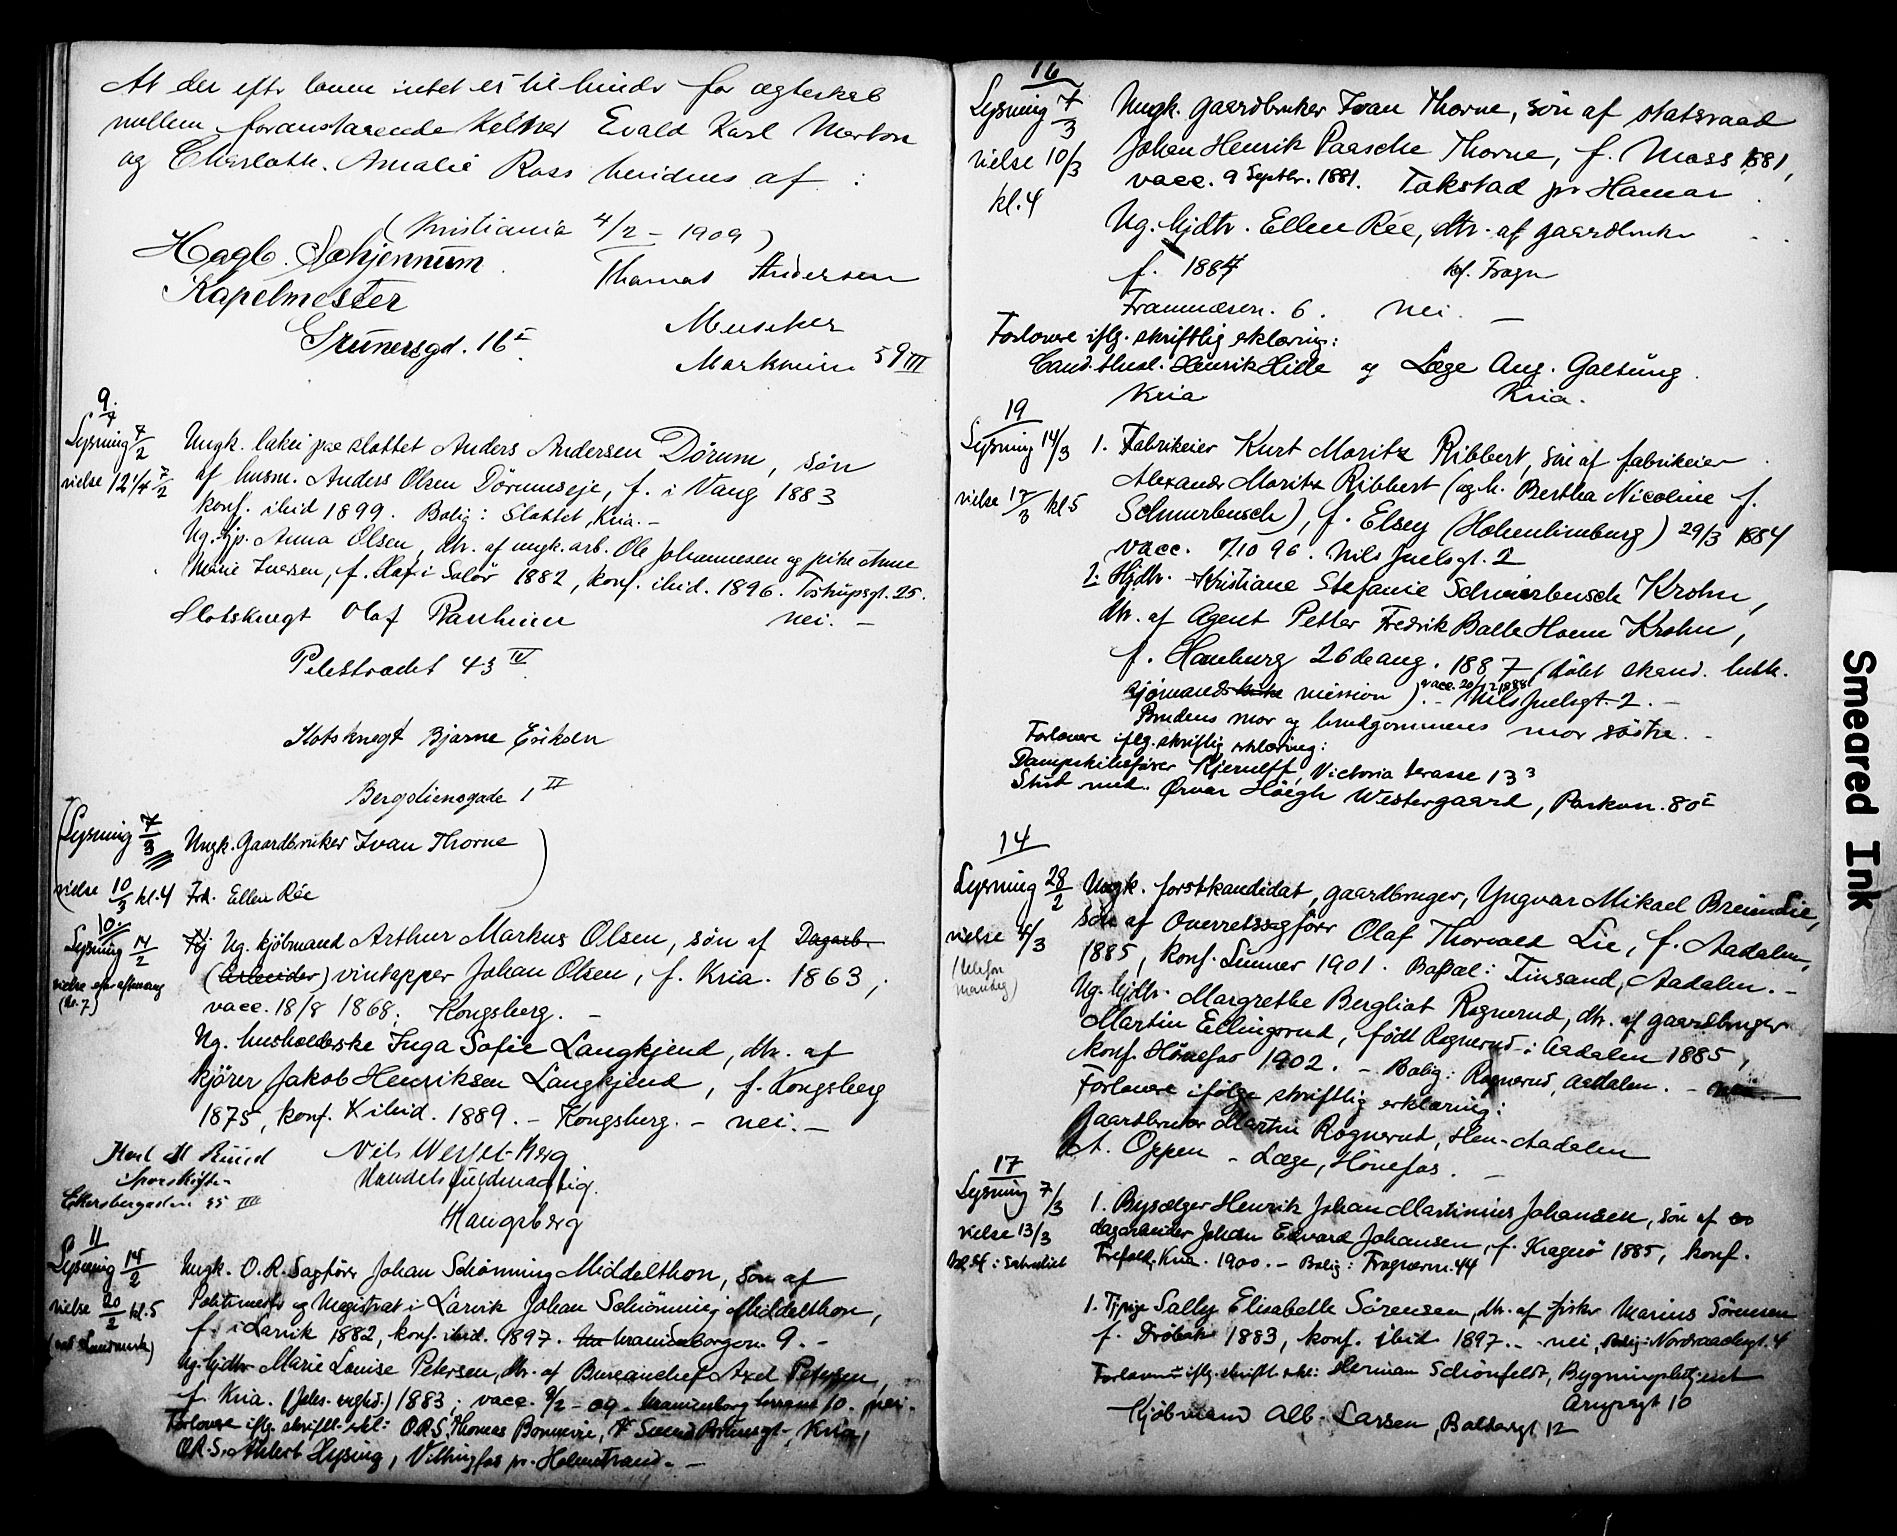 At der efter loven intet er til hinder for ægteskab
mellem foranstaaende Kelner Evald Karl
og Charlotte Amalie Ross bevidnes af :
( Kristiania 4/2 - 1909 )
Hagb. Schjennum
Thomas Andersen
Kapelmester
Grünersgd. 16 I
Musiker
Markveien 59 III
9.
Lysning 7/2
vielse 12 1/4 7/2
Ungk. lakei paa slottet Anders Andersen Dörum, søn
af husm. Anders Olsen Dörumseje, f. i Vang 1883
konf. ibid 1899. Bolig: Slottet, Kria. -
Ug. tjp. Anna Olsen, dtr. af ungk. arb. Ole Johannesen og pike Anne
Marie Iversen, f. Hof i Solör 1882, konf. ibid. 1896. Tostrupsgt. 25.
nei. -
Slotsknegt Olaf Ranheim
Pilestrædet 43 IV
Slotsknegt Bjarne Eriksen
Bergsliensgade 1 II
(Lysning 7/3
Ungk. Gaardbruker Ivan Thorne
)
vielse 10/3 kl. 4
Frk. Ellen Rée
10
Lysning 14/2
vielse
(kl. 7)
Ug. kjöbmand Arthur Markus Olsen, søn af Dagarb.
(Arbeider) vintapper Johan Olsen, f. Kria. 1863,
vacc. 18/8 1868. Kongsberg. -
Ug. husholderske Inga Sofie Langkjend, dtr. af
kjörer Jakob Henriksen Langkjend, f. Kongsberg
1875, konf. ibid. 1889. - Kongsberg. - nei. -
Karl M Ruud
Sporskifter
35 III
Nils Berg
Handelsfuldmægtig.
11
Lysning 14/2
vielse 20/2 kl. 5
Ungk. O.R. Sagfører Johan Schönning Middelthon, søn af
Politimester og Magistrat i Larvik Johan Schönning Middelthon,
f. i Larvik 1882, konf. ibid. 1897. Uranienborgvn. 9. -
Ug. hjdtr. Marie Louise Petersen, dtr. af Bureauchef Axel Petersen,
f. Kria. 1883, vacc. 9/2 - 09. Uranienborg terrasse 10. nei.
Forlovere iflg. skriftl. erkl: O.R.S. Thomas Bonnevie, Kria,
O.R.S. Ahlert Hysing, Vittingfos pr. Holmestrand. -
16
Lysning 7/3
vielse 10/3
kl. 4
Ungk. gaardbruker Ivan Thorne, søn af statsraad
Johan Henrik Paasche Thorne, f. Moss 1881,
vacc. 9 Septbr. 1881. Tokstad pr Hamar
Ug. hjdtr. Ellen Rée, dtr. af gaardbruker
f. 1884
Frogn
Framnæsvn. 6. nei. -
Forlovere iflg. skriftlig erklæring:
Cand. theol. Henrik Hille og Læge Aug. Galtung.
Kria
Kria.
19
Lysning 14/3
vielse 17/3 kl. 5
1. Fabrikeier Kurt Moritz Ribbert, søn af fabrikeier
Alexander Moritz Ribbert (og h. Bertha Nicoline f.
Schmerbusch), f. Elsey (Hohenlimburg) 29/3 1884
vacc. 7/10 96. Nils Juelsgt. 2
1. Hjdtr. Kristiane Stefanie Krohn,
dtr. af Agent Petter Fredrik Balle Krohn,
f. Hamburg 26de aug. 1887 (döbt skand. luth.
sjømands kirke mission). - Nils Juelsgt. 2. -
vacc. 20/12 1888
Brudens mor og brudgommens mor søstre. -
Forlovere iflg. skriftlig erklæring:
Dampskibsfører Kjerulff, Victoria terasse 13 3
Stud. med. Ørvar Höegh Westergaard, Parkvn. 80 I
14
Lysning 28/2
vielse 4/3
Ungk. forstkandidat, gaardbruger, Yngvar Mikael Breien Lie,
søn af Overretssagfører Olaf Thorvald Lie, f. Aadalen,
1885, konf. Lunner 1901. Bopæl: Tinsand, Aadalen. -
Ug. hjdtr. Margrethe Bergliot Rognerud, dtr. af gaardbruger
Martin Ellingsrud, født Rognerud i Aadalen 1885,
konf. Hönefos 1902. - Bolig: Rognerud, Aadalen. - nei. -
Forlovere ifølge skriftlig erklæring:
Gaardbruker Martin Rognerud, Hen-Aadalen
A. Oppen - Læge, Hönefos. -
17
Lysning 7/3
vielse 13/3
1. Bysælger Henrik Johan Martinius Johansen, søn af
dagarbeider Johan Edvard Johansen, f. Kragerö 1885, konf.
Trefold. Kria. 1900. - Bolig: Frognervn. 44
1. Tjpige Sally Elisabeth Sörensen, dtr. af fisker Marius Sörensen
f. Dröbak 1883, konf. ibid 1897. - nei, Bolig: Nordraachsgt. 4
Forlovere iflg. skriftl. erkl: Herman Schönfeldt,
Kjöbmand Alb. Larsen, Baldersgt 12
Smeared Ink